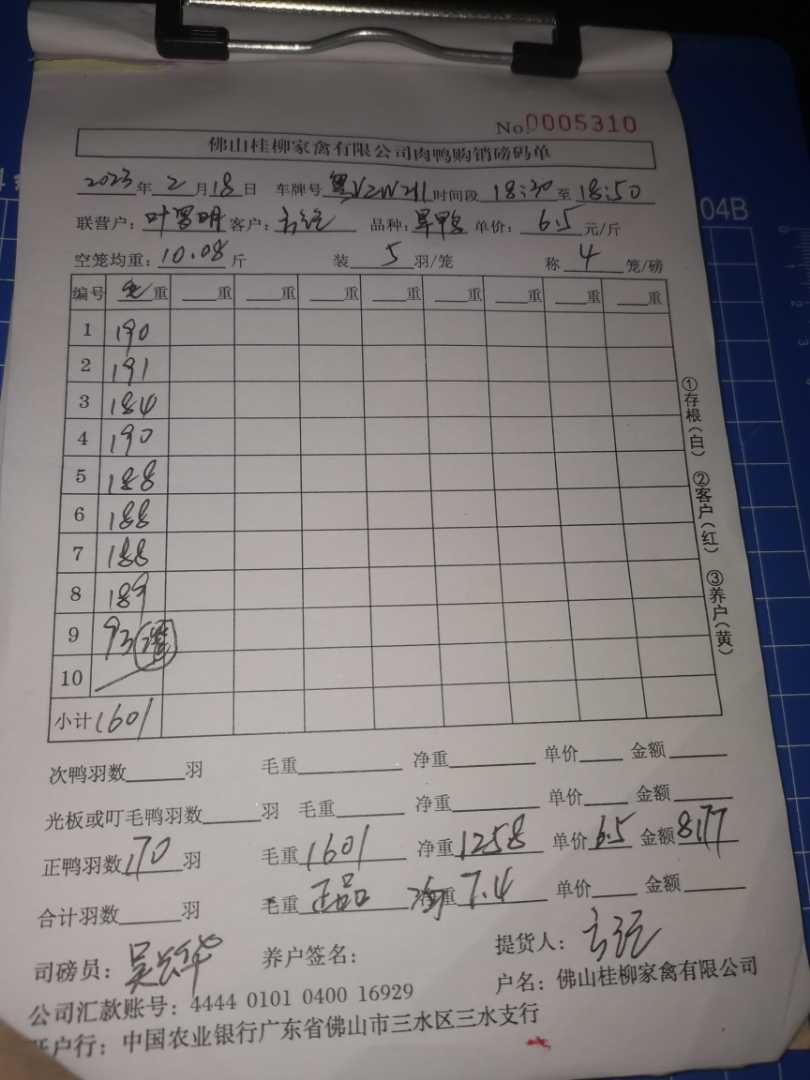 No 0005310
佛山桂柳家禽有限公司肉鸭购销磅码单
2023年2月18日 车牌号 粤V2W211 时间段 18:30至18:50
联营户: 叶 明 客户: 品种: 旱鸭 单价: 6.5 元/斤
空笼均重: 10.08 斤 装 5 羽/笼 称 4 笼/磅
编号 毛重 重 重 重 重 重 重 重 重
1 190
2 191
3 184
4 190
5 188
6 188
7 188
8 189
9 93
10
小计 1601
①存根(白) ②客户(红) ③养户(黄)
次鸭羽数 羽 毛重 净重 单价 金额
光板或叮毛鸭羽数 羽 毛重 净重 单价 金额
正鸭羽数 170 羽 毛重 1601 净重 1258 单价 6.5 金额 8177
合计羽数 羽 毛重 正品 净重 7.4 单价 金额
司磅员: 吴 华 养户签名: 提货人:
公司汇款账号: 4444 0101 0400 16929 户名: 佛山桂柳家禽有限公司
开户行: 中国农业银行广东省佛山市三水区三水支行
04B